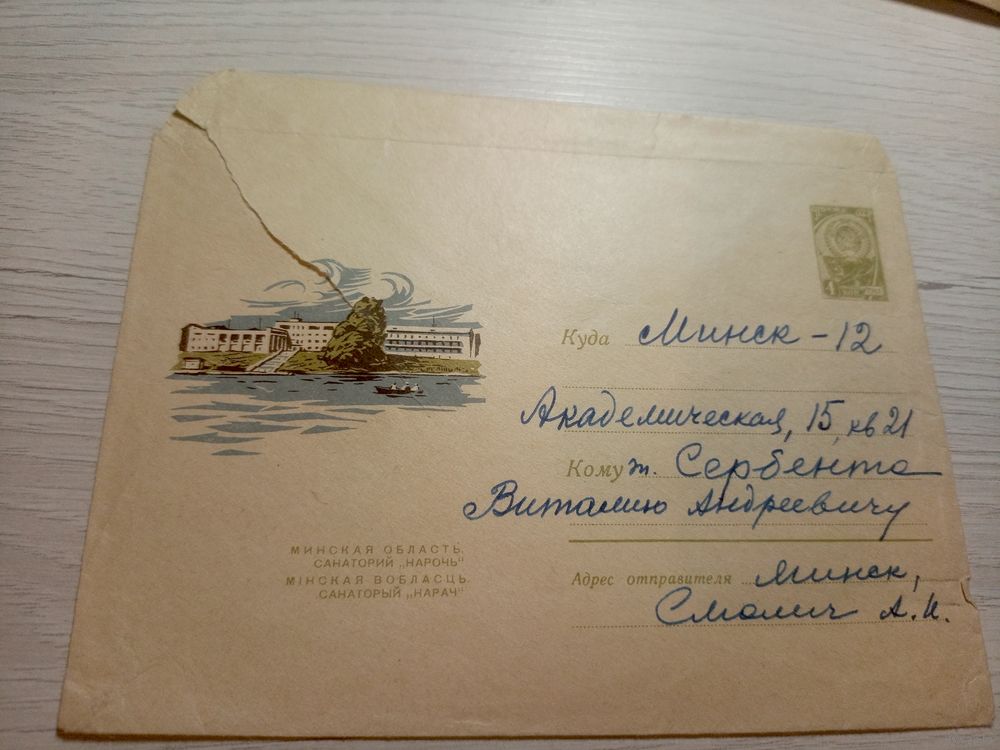 Куда Минск - 12
Академическая, 15, кв 21
Кому т. Сербента
Виталию Андреевичу
МИНСКАЯ ОБЛАСТЬ.
САНАТОРИЙ „НАРОЧЬ“
МІНСКАЯ ВОБЛАСЦЬ.
САНАТОРЫЙ „НАРАЧ“
Адрес отправителя Минск,
Смолич А.И.
4